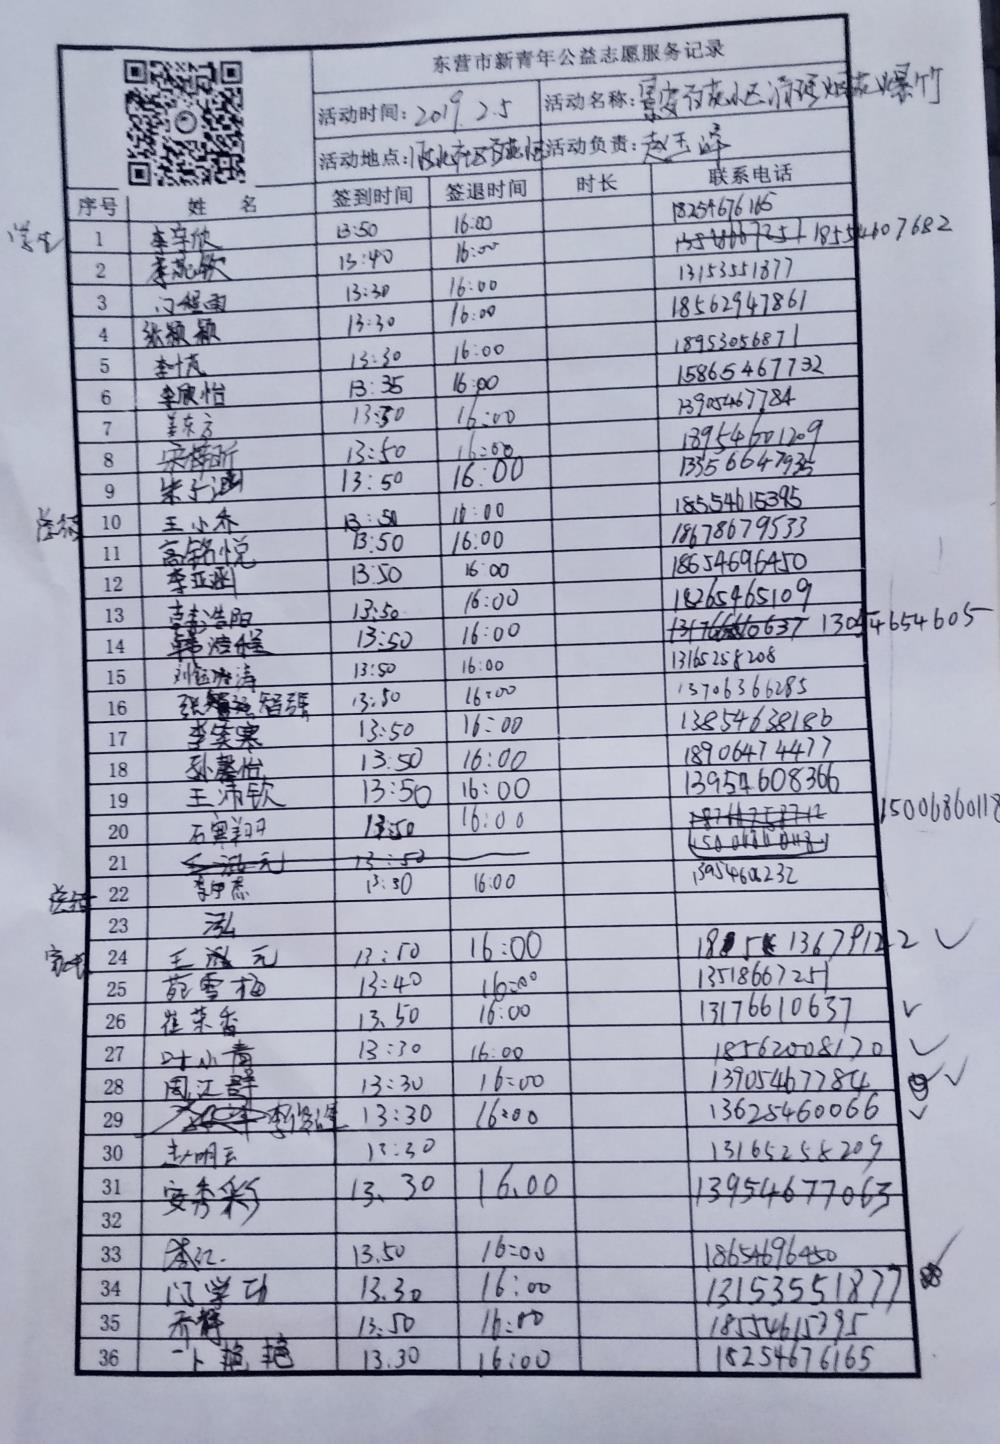 东营市新青年公益志愿服务记录
活动时间: 2019.2.5 活动名称: 景安百花小区清理烟花爆竹
活动地点: 活动负责: 赵玉峰
序号 姓名 签到时间 签退时间 时长 联系电话
学生 1 李宇欣 13:50 16:00 18254676165
2 13:40 16:00 13518667251 18554607682
3 门程雨 13:30 16:00 13153551877
4 张颖颖 13:30 16:00 18562947861
5 李叶芃 13:30 16:00 18953056871
6 李欣怡 13:35 16:00 15865467732
7 姜东方 13:30 16:00 13905467784
8 13:50 16:00 18954601209
9 朱子涵 13:50 16:00
10 王小乔 13:50 16:00 18554615395
11 高铭悦 13:50 16:00 18678679533
12 李亚函 13:50 16:00 18654696450
13 浩阳 13:50 16:00 18265465109
14 韩浩程 13:50 16:00 13176610637 13054654605
15 13:50 16:00 13165258208
16 张智强 13:50 16:00 13706366285
17 李奕寒 13:50 16:00 13854638186
18 孙馨怡 13:50 16:00 18906474477
19 王沛钦 13:50 16:00 13954608366
20 石寒羽 13:50 16:00 18766758712 15006860118
21 王泓元 13:50
22 李中杰 13:30 16:00 13954606232
23 泓
家长 24 王泓元 13:50 16:00 13679122
25 苑雪梅 13:40 16:00 13518667251
26 崔荣香 13.50 16:00 13176610637
27 叶小青 13:30 16:00 18562008170
28 周江群 13:30 16:00 13905467784
29 13:30 16:00 13625460066
30 赵明云 13:30 13165258209
31 安秀彩 13.30 16.00 13954677063
32
33 李江 13.50 16:00 18654696450
34 门学功 13.30 16:00 13153551877
35 乔静 13.50 16:00 18554615395
36 卜艳艳 13.30 16:00 18254676165